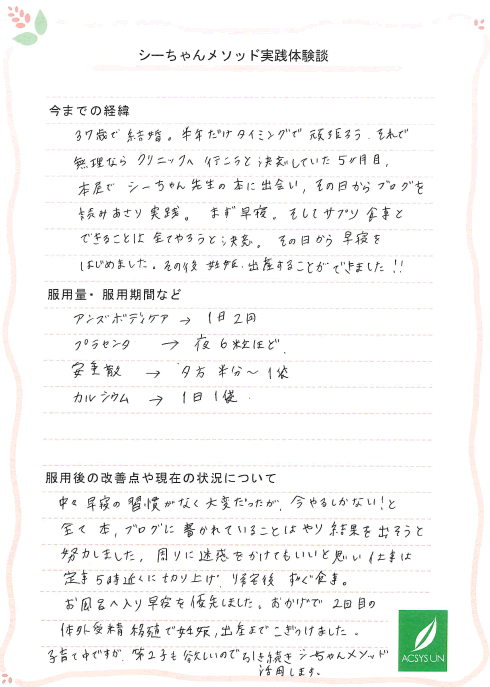 シーちゃんメソッド実践体験談
今までの経緯
37歳で結婚。半年だけタイミングで頑張ろう、それで
無理なら クリニックへ 行こうと決意していた5ヶ月目、
本屋で シーちゃん先生の本に出会い、その日からブログを
読みあさり実践。 まず早寝。そしてサプリ 食事と
できることは 全てやろうと決意。 その日から 早寝を
はじめました。その後 妊娠、出産することができました!!
服用量・服用期間など
アンズボディケア → 1日2回
プラセンタ → 夜6粒ほど。
安重散 → 夕方 半分〜1袋
カルシウム → 1日1袋
服用後の改善点や現在の状況について
中々 早寝の習慣がなく大変だったが、今やるしかない!と
全て 本、ブログに書かれていることはやり結果を出そうと
努力しました。周りに迷惑をかけてもいいと思い 仕事は
定時5時近くに切り上げ、帰宅後 すぐ食事。
お風呂へ入り早寝を優先しました。おかげで2回目の
体外受精 移植で妊娠、出産までこぎつけました。
子育て中ですが、第2子も欲しいのでひき続き シーちゃんメソッド
活用します。
ACSYS UN